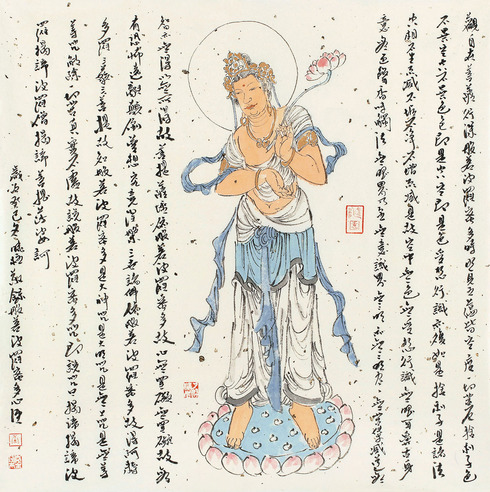 觀自在菩薩行深般若波羅蜜多時照見五蘊皆空度一切苦厄舍利子色
不異空空不異色色即是空空即是色受想行識亦復如是舍利子是諸法
空相不生不滅不垢不淨不增不減是故空中無色無受想行識無眼耳鼻舌身
意無色聲香味觸法無眼界乃至無意識界無無明亦無無明盡無苦集滅道無
智亦無得以無所得故菩提薩埵依般若波羅蜜多故心無罣礙無罣礙故無
有恐怖遠離顛倒夢想究竟涅槃三世諸佛依般若波羅蜜多故得阿耨
多羅三藐三菩提故知般若波羅蜜多是大神咒是大明咒是無上咒是無等
等咒能除一切苦真實不虛故說般若波羅蜜多咒即說咒曰揭諦揭諦波
羅揭諦波羅僧揭諦菩提薩婆訶
歲次癸巳冬敬錄般若波羅蜜多心經